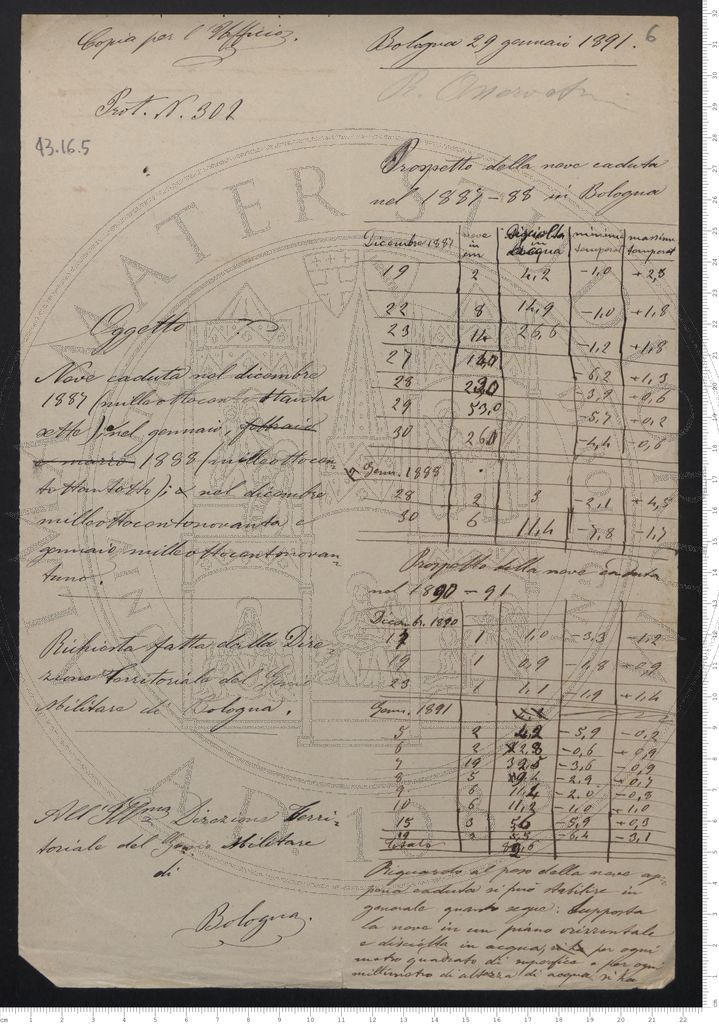 Copia per l'Ufficio.
Bologna 29 gennaio 1891.
6
R. Osservat
Prot. N. 302
43.16.5
Prospetto della neve caduta
nel 1887-88 in Bologna
Dicembre 1887 neve in cm Disciolta in acqua minim temperat massim temperat
19 2 4,2 -1,0 +2,3
22 8 14,9 -1,0 +1,8
23 14 26,6 -1,2 +1,8
27 -6,2 +1,3
28 -3,9 +0,6
29 53,0 -5,7 +0,2
30 -4,4 -0,6
Genn. 1888
28 2 3 -2,1 +4,5
30 6 11,4 -7,8 -1,7
Oggetto
Neve caduta nel dicembre
1887 (milleottocentottanta
sette); nel gennaio, febbraio
e marzo 1888 (milleottocen-
tottantotto); e nel dicembre
milleottocentonovanta e
gennaio milleottocentonovan-
tuno.
Richiesta fatta dalla Dire-
zione Territoriale del Genio
Militare di Bologna.
All'Illma Direzione Terri-
toriale del Genio Militare
di
Bologna.
Prospetto della neve caduta
nel 1890-91
Dicemb. 1890
17 1 1,0 -3,3 -1,2
19 1 0,9 -1,8 +0,9
23 1 1,1 -1,9 +1,4
Genn. 1891
5 2 4,2 -5,9 -0,2
6 2 2,8 -0,6 +0,9
7 19 32,5 -3,6 -0,9
8 5 -2,9 +0,7
9 6 -2,0 -0,8
10 6 11,2 -1,0 +1,0
15 3 5,6 -5,9 +0,3
19 2 5,5 -6,4 -3,1
Totale
Riguardo al peso della neve ap-
pena caduta si può stabilire in
generale quanto segue: Supposta
la neve in un piano orizzontale
e disciolta in acqua, per ogni
metro quadrato di superficie e per ogni
millimetro di altezza di acqua si ha